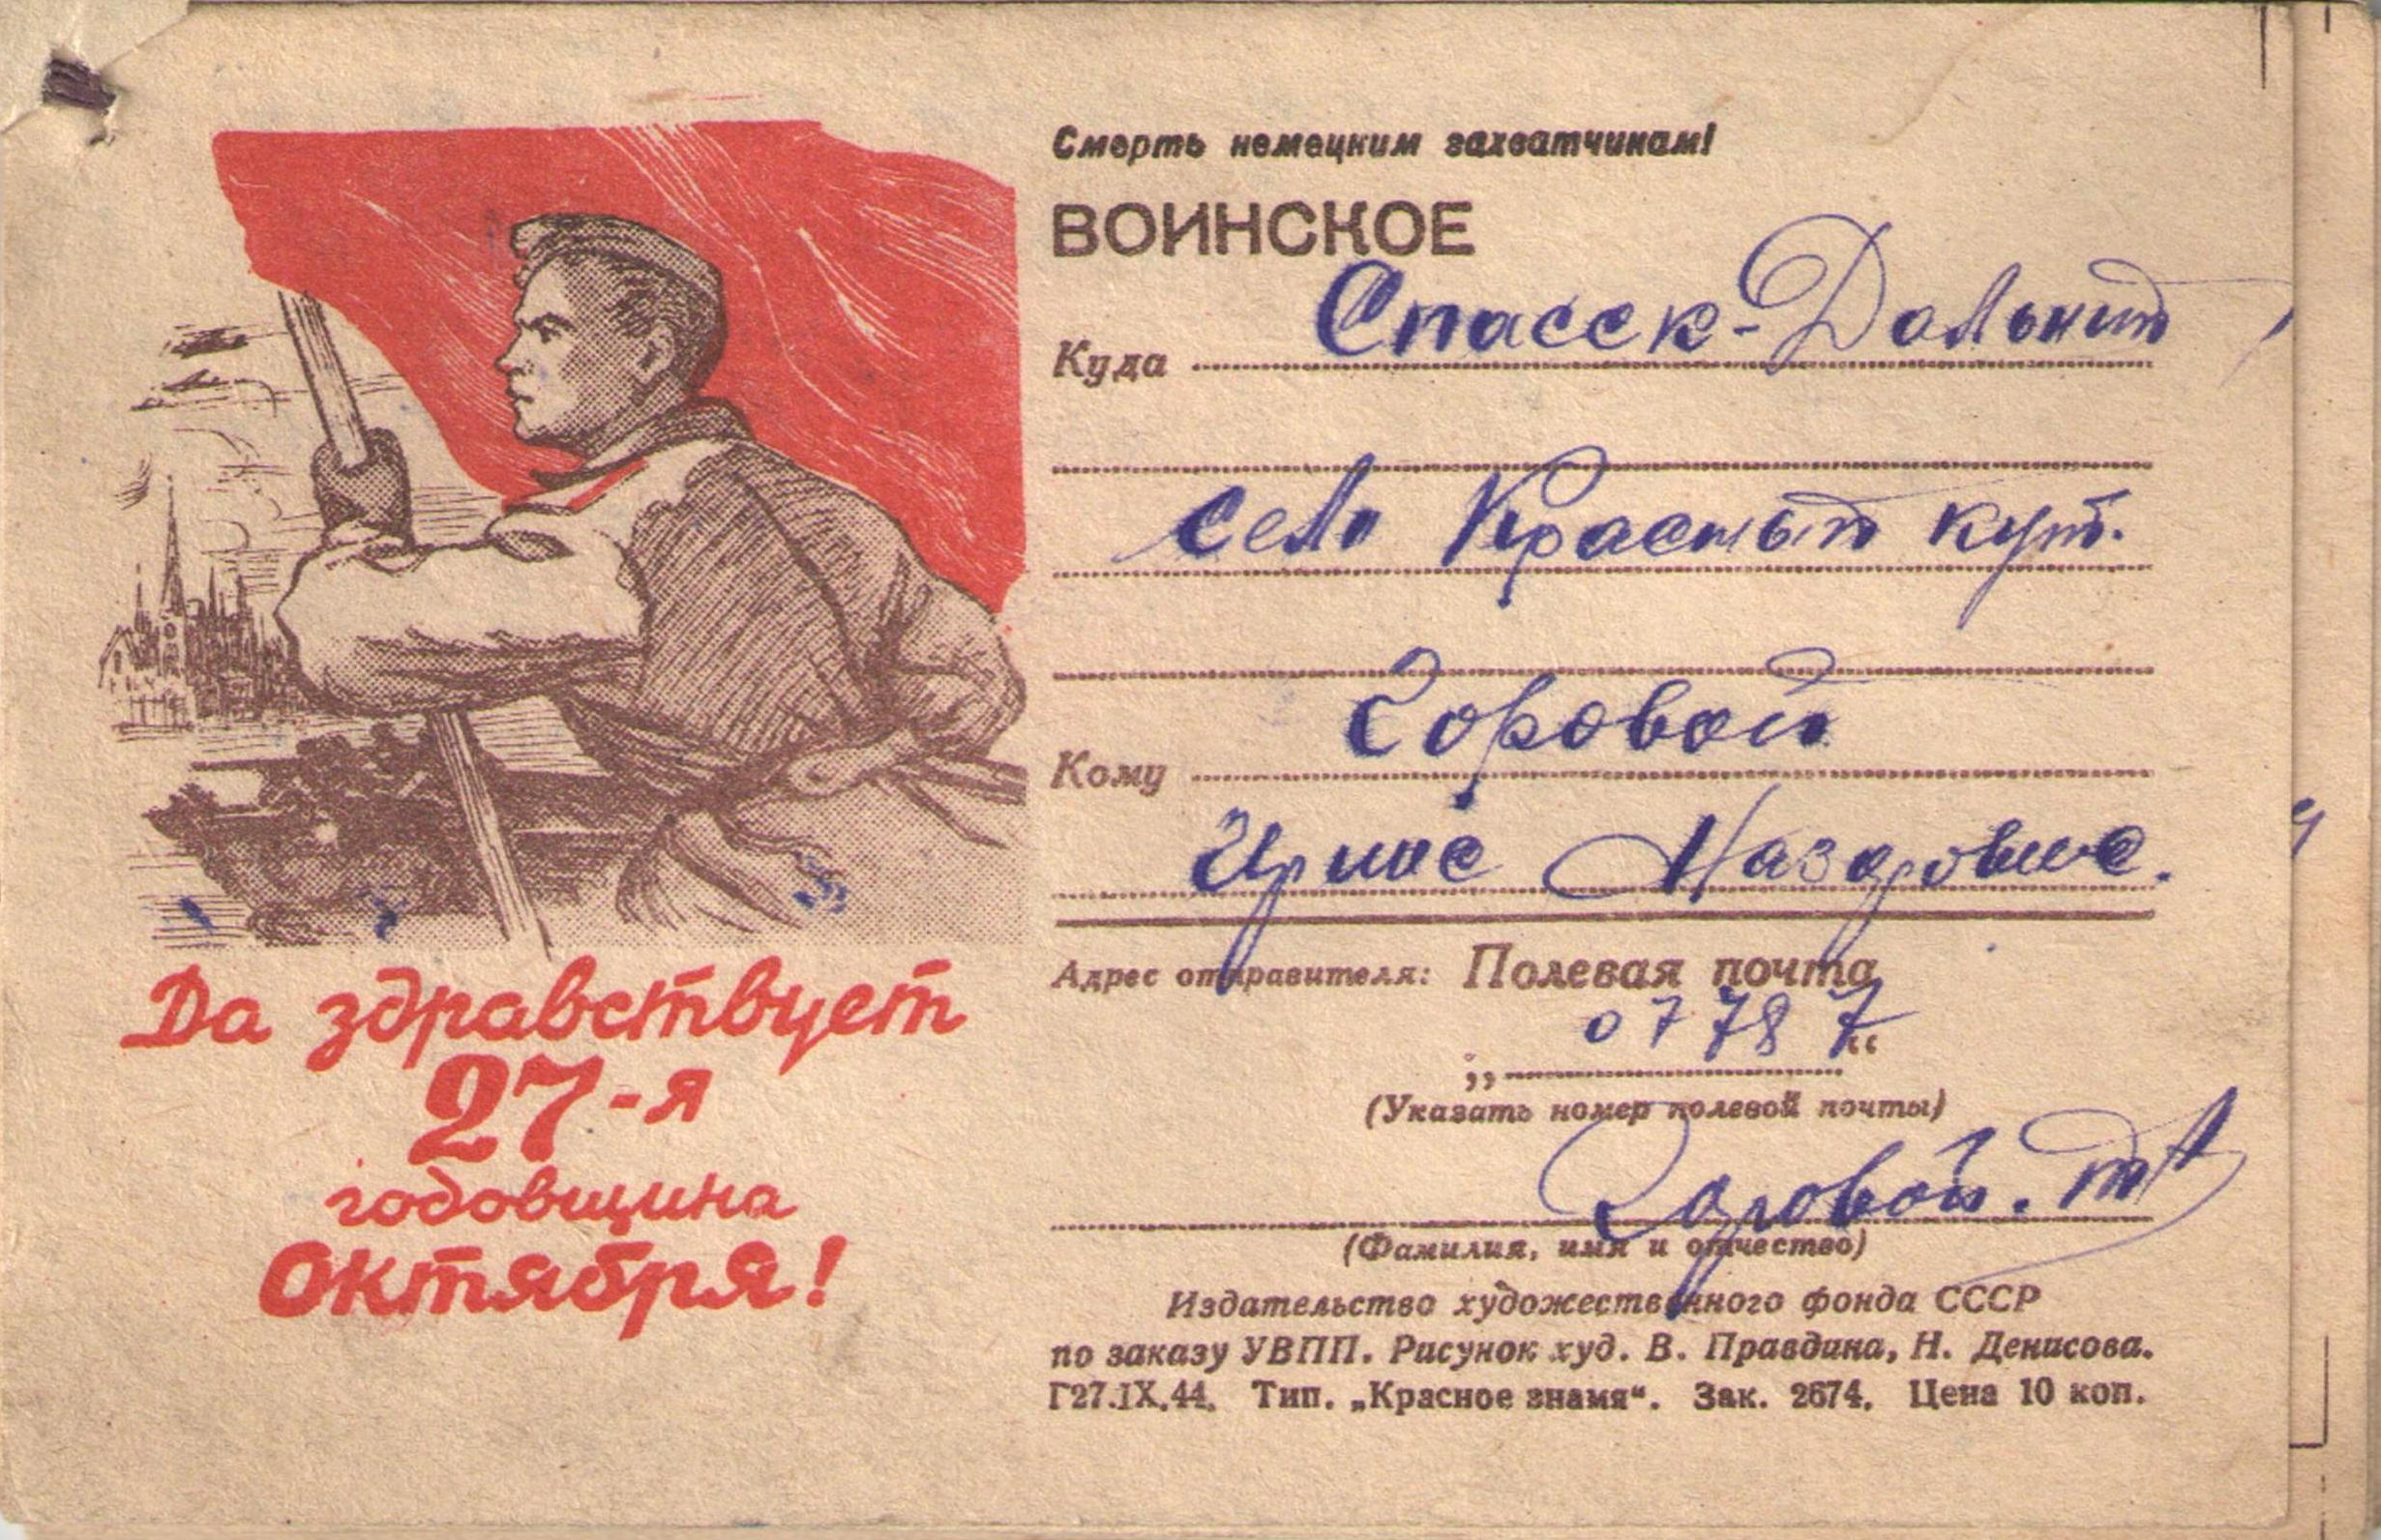 Да здравствует
27-я
годовщина
Октября!
Смерть немецким захватчикам!
ВОИНСКОЕ
Куда Спасск-Дальний
село Красный кут.
Кому Горовой
Ирине Назаровне.
Адрес отправителя: Полевая почта
„07787“
(Указать номер полевой почты)
(Фамилия, имя и отчество)
Издательство художественного фонда СССР
по заказу УВПП. Рисунок худ. В. Правдина, Н. Денисова.
Г27.IX.44. Тип. „Красное знамя“. Зак. 2674. Цена 10 коп.